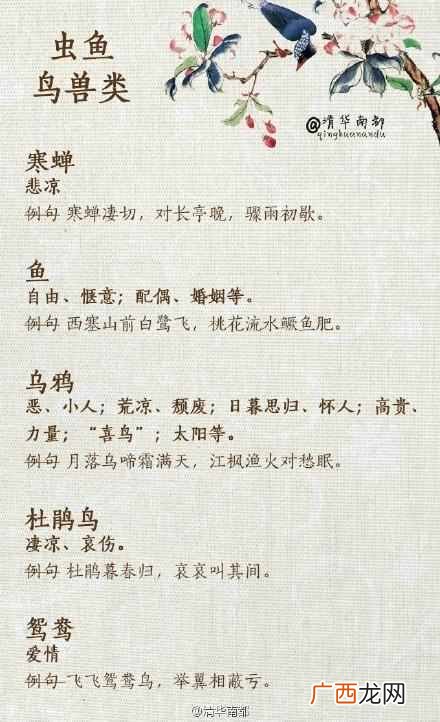 虫鱼
鸟兽类
@清华南都
qinghuanandu
寒蝉
悲凉
例句 寒蝉凄切，对长亭晚，骤雨初歇。
鱼
自由、惬意；配偶、婚姻等。
例句 西塞山前白鹭飞，桃花流水鳜鱼肥。
乌鸦
恶、小人；荒凉、颓废；日暮思归、怀人；高贵、
力量；“喜鸟”；太阳等。
例句 月落乌啼霜满天，江枫渔火对愁眠。
杜鹃鸟
凄凉、哀伤。
例句 杜鹃暮春归，哀哀叫其间。
鸳鸯
爱情
例句 飞飞鸳鸯鸟，举翼相蔽亏。
@清华南都
广西龙网